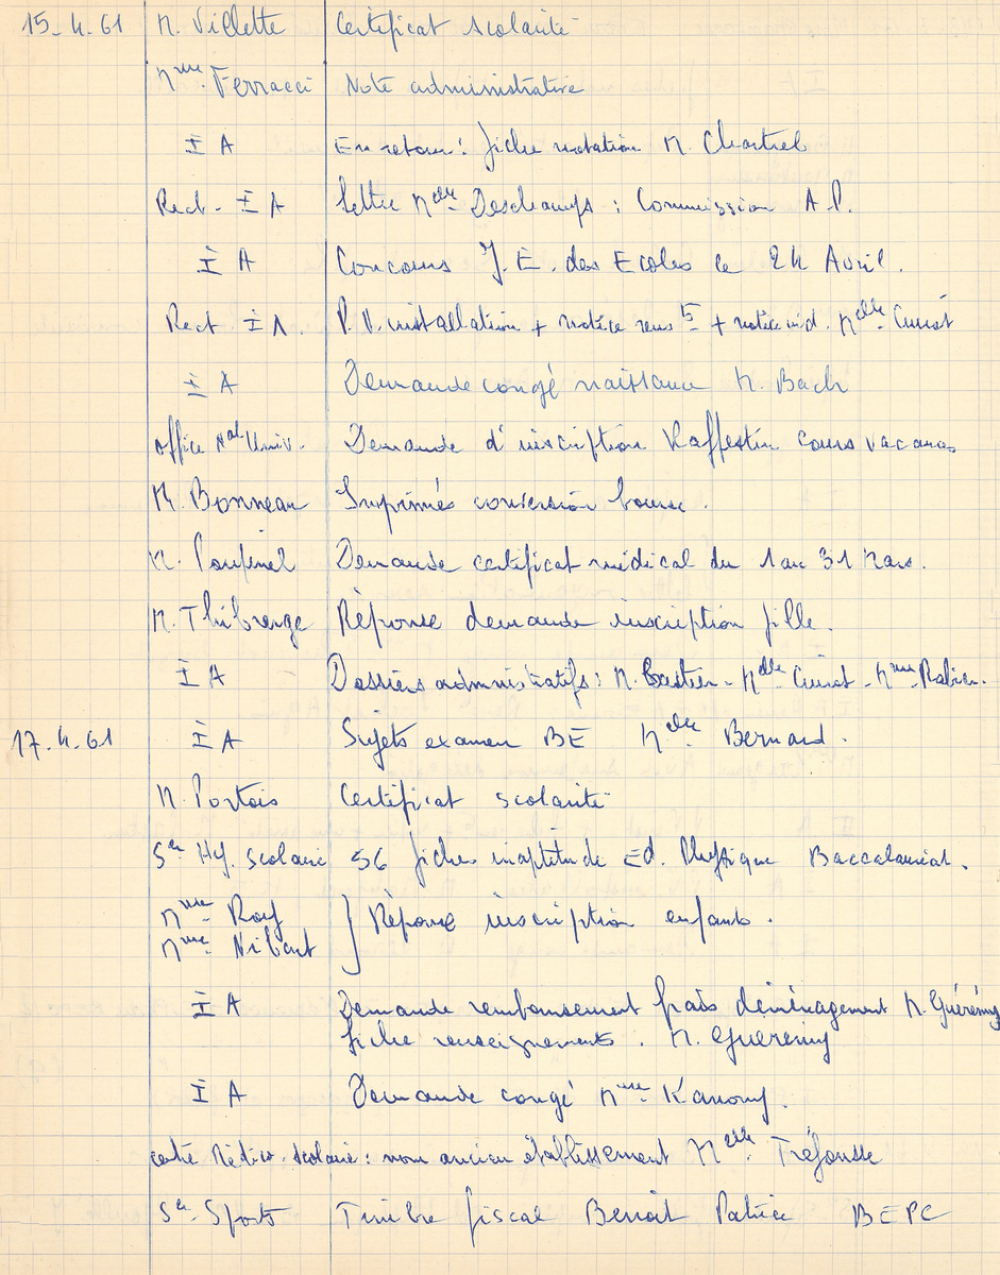 15-4.61 M. Villette Certificat scolarité
Mme Ferracci Note administrative
I A En retour : fiche notation M. Chartrel
Rect - I A Lettre Melle Deschamps : Commission A.P.
I A Concours J.E. des Ecoles le 24 Avril.
Rect I A. P.V. installation + notice rens ts + notice ind. Melle Cunat
I A Demande congé naissance M. Bach
Office Nal Univ. Demande d'inscription Raffestin cours vacances
M. Bonneau Imprimés conversion bourse.
M. Poupinel Demande certificat médical du 1 au 31 Mars.
M. Thibierge Réponse demande inscription fille.
I A Dossiers administratifs : M. Bastien - Melle Cunat - Mme Rabier.
17.4.61 I A Sujets examen BE Melle Bernard.
M. Portois Certificat scolarité
Sce Hy. scolaire 56 fiches inaptitude Ed. Physique Baccalauréat.
Mme Roy } Réponse inscription enfants.
Mme Nibart
I A Demande remboursement frais déménagement M. Guéremy
fiche renseignements. M. Gueremy
I A Demande congé Mme Kanony.
centre Médico-scolaire : nom ancien établissement Melle Tréfousse
Sce Sports Timbre fiscal Benoit Patrice BEPC